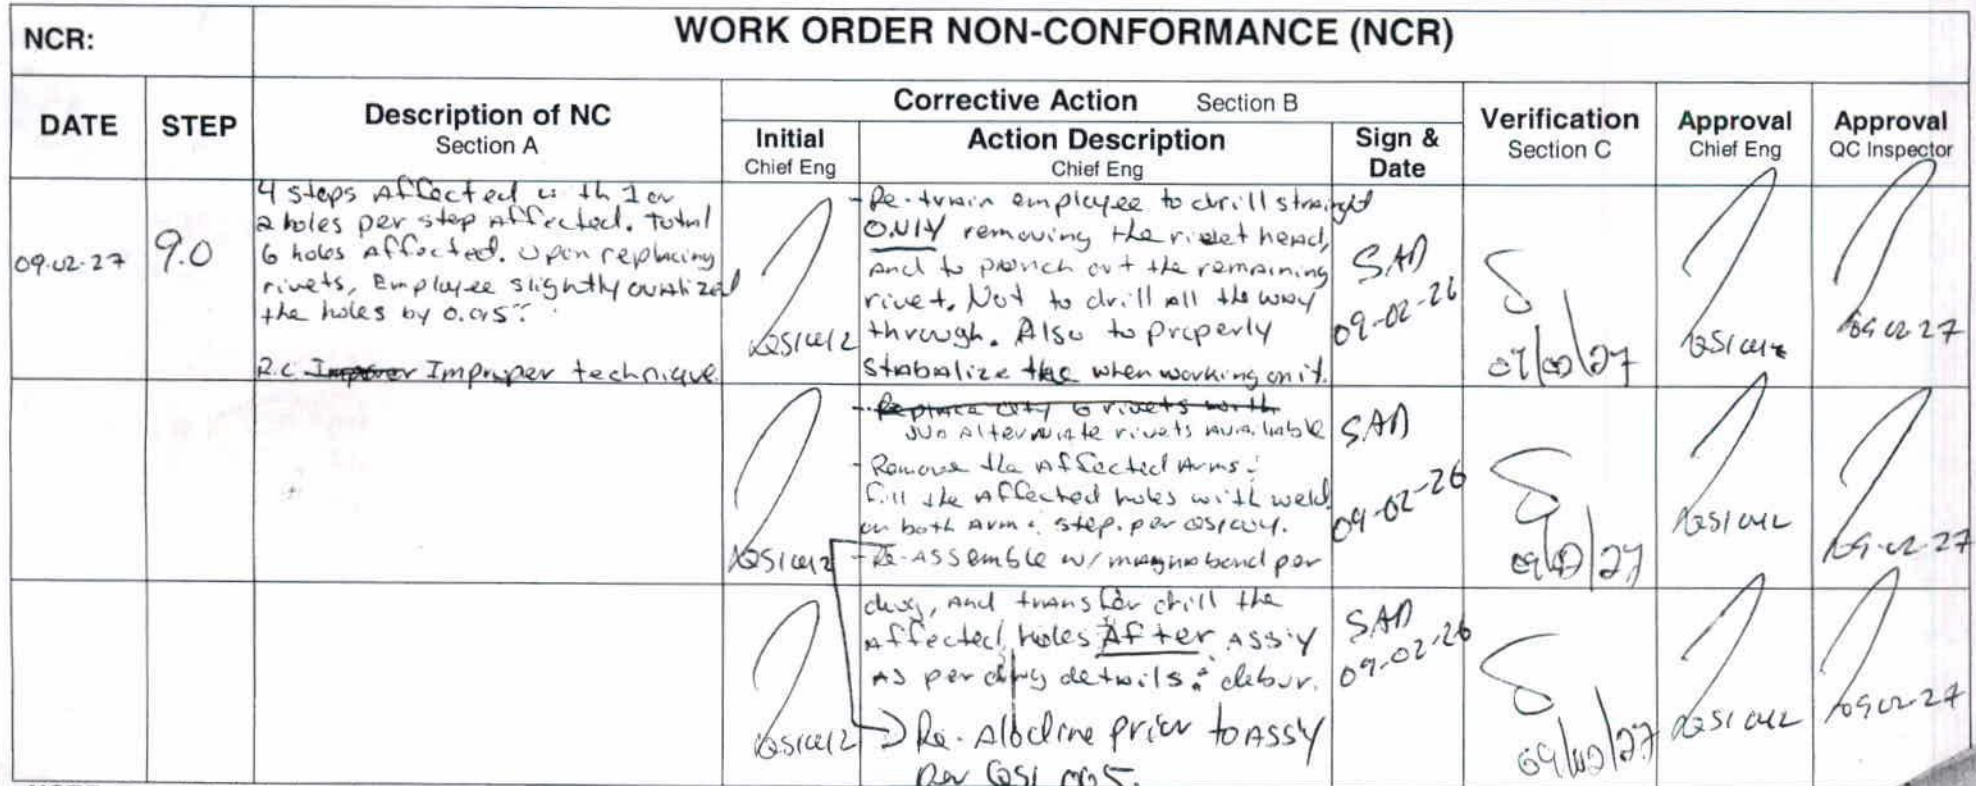 NCR:
WORK ORDER NON-CONFORMANCE (NCR)
DATE
STEP
Description of NC
Section A
Corrective Action Section B
Initial
Chief Eng
Action Description
Chief Eng
Sign &
Date
Verification
Section C
Approval
Chief Eng
Approval
QC Inspector
09-02-27
9.0
4 steps Affected with 1 or
2 holes per step Affected. Total
6 holes Affected. Upon replacing
rivets, Employee slightly ovalized
the holes by
R.C Improper technique
QSI 012
- Re-train employee to drill straight
ONLY removing the rivet head,
and to punch out the remaining
rivet. Not to drill all the way
through. Also to properly
stabalize the when working on it.
SAD
09-02-26
09/02/27
QSI 012
09-02-27
QSI 012
- Replace qty 6 rivets with
No Alternate rivets available
- Remove the Affected Arms &
fill the Affected holes with weld
on both Arm & step. per
- Re-Assemble w/ magnabond per
SAD
09-02-26
09/02/27
QSI 012
09-02-27
QSI 012
dwg, and transfer drill the
Affected holes After Ass'y
As per dwg details & debur.
Re-Alodine prior to Ass'y
per QSI 005.
SAD
09-02-26
09/02/27
QSI 012
09-02-27